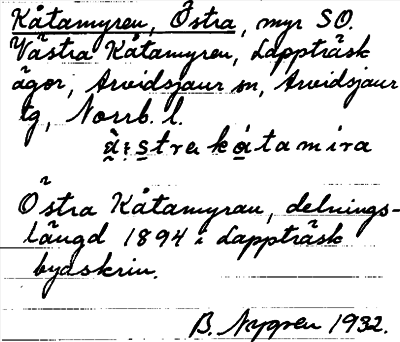 Kåtamyren, Östra, myr SO.
Västra Kåtamyren, Lappträsk
ägor, Arvidsjaur sn, Arvidsjaur
tg, Norrb. l.
kåtamira
Östra Kåtamyran, delnings-
längd 1894 i Lappträsk
byaskrin.
B. Nygren 1932.